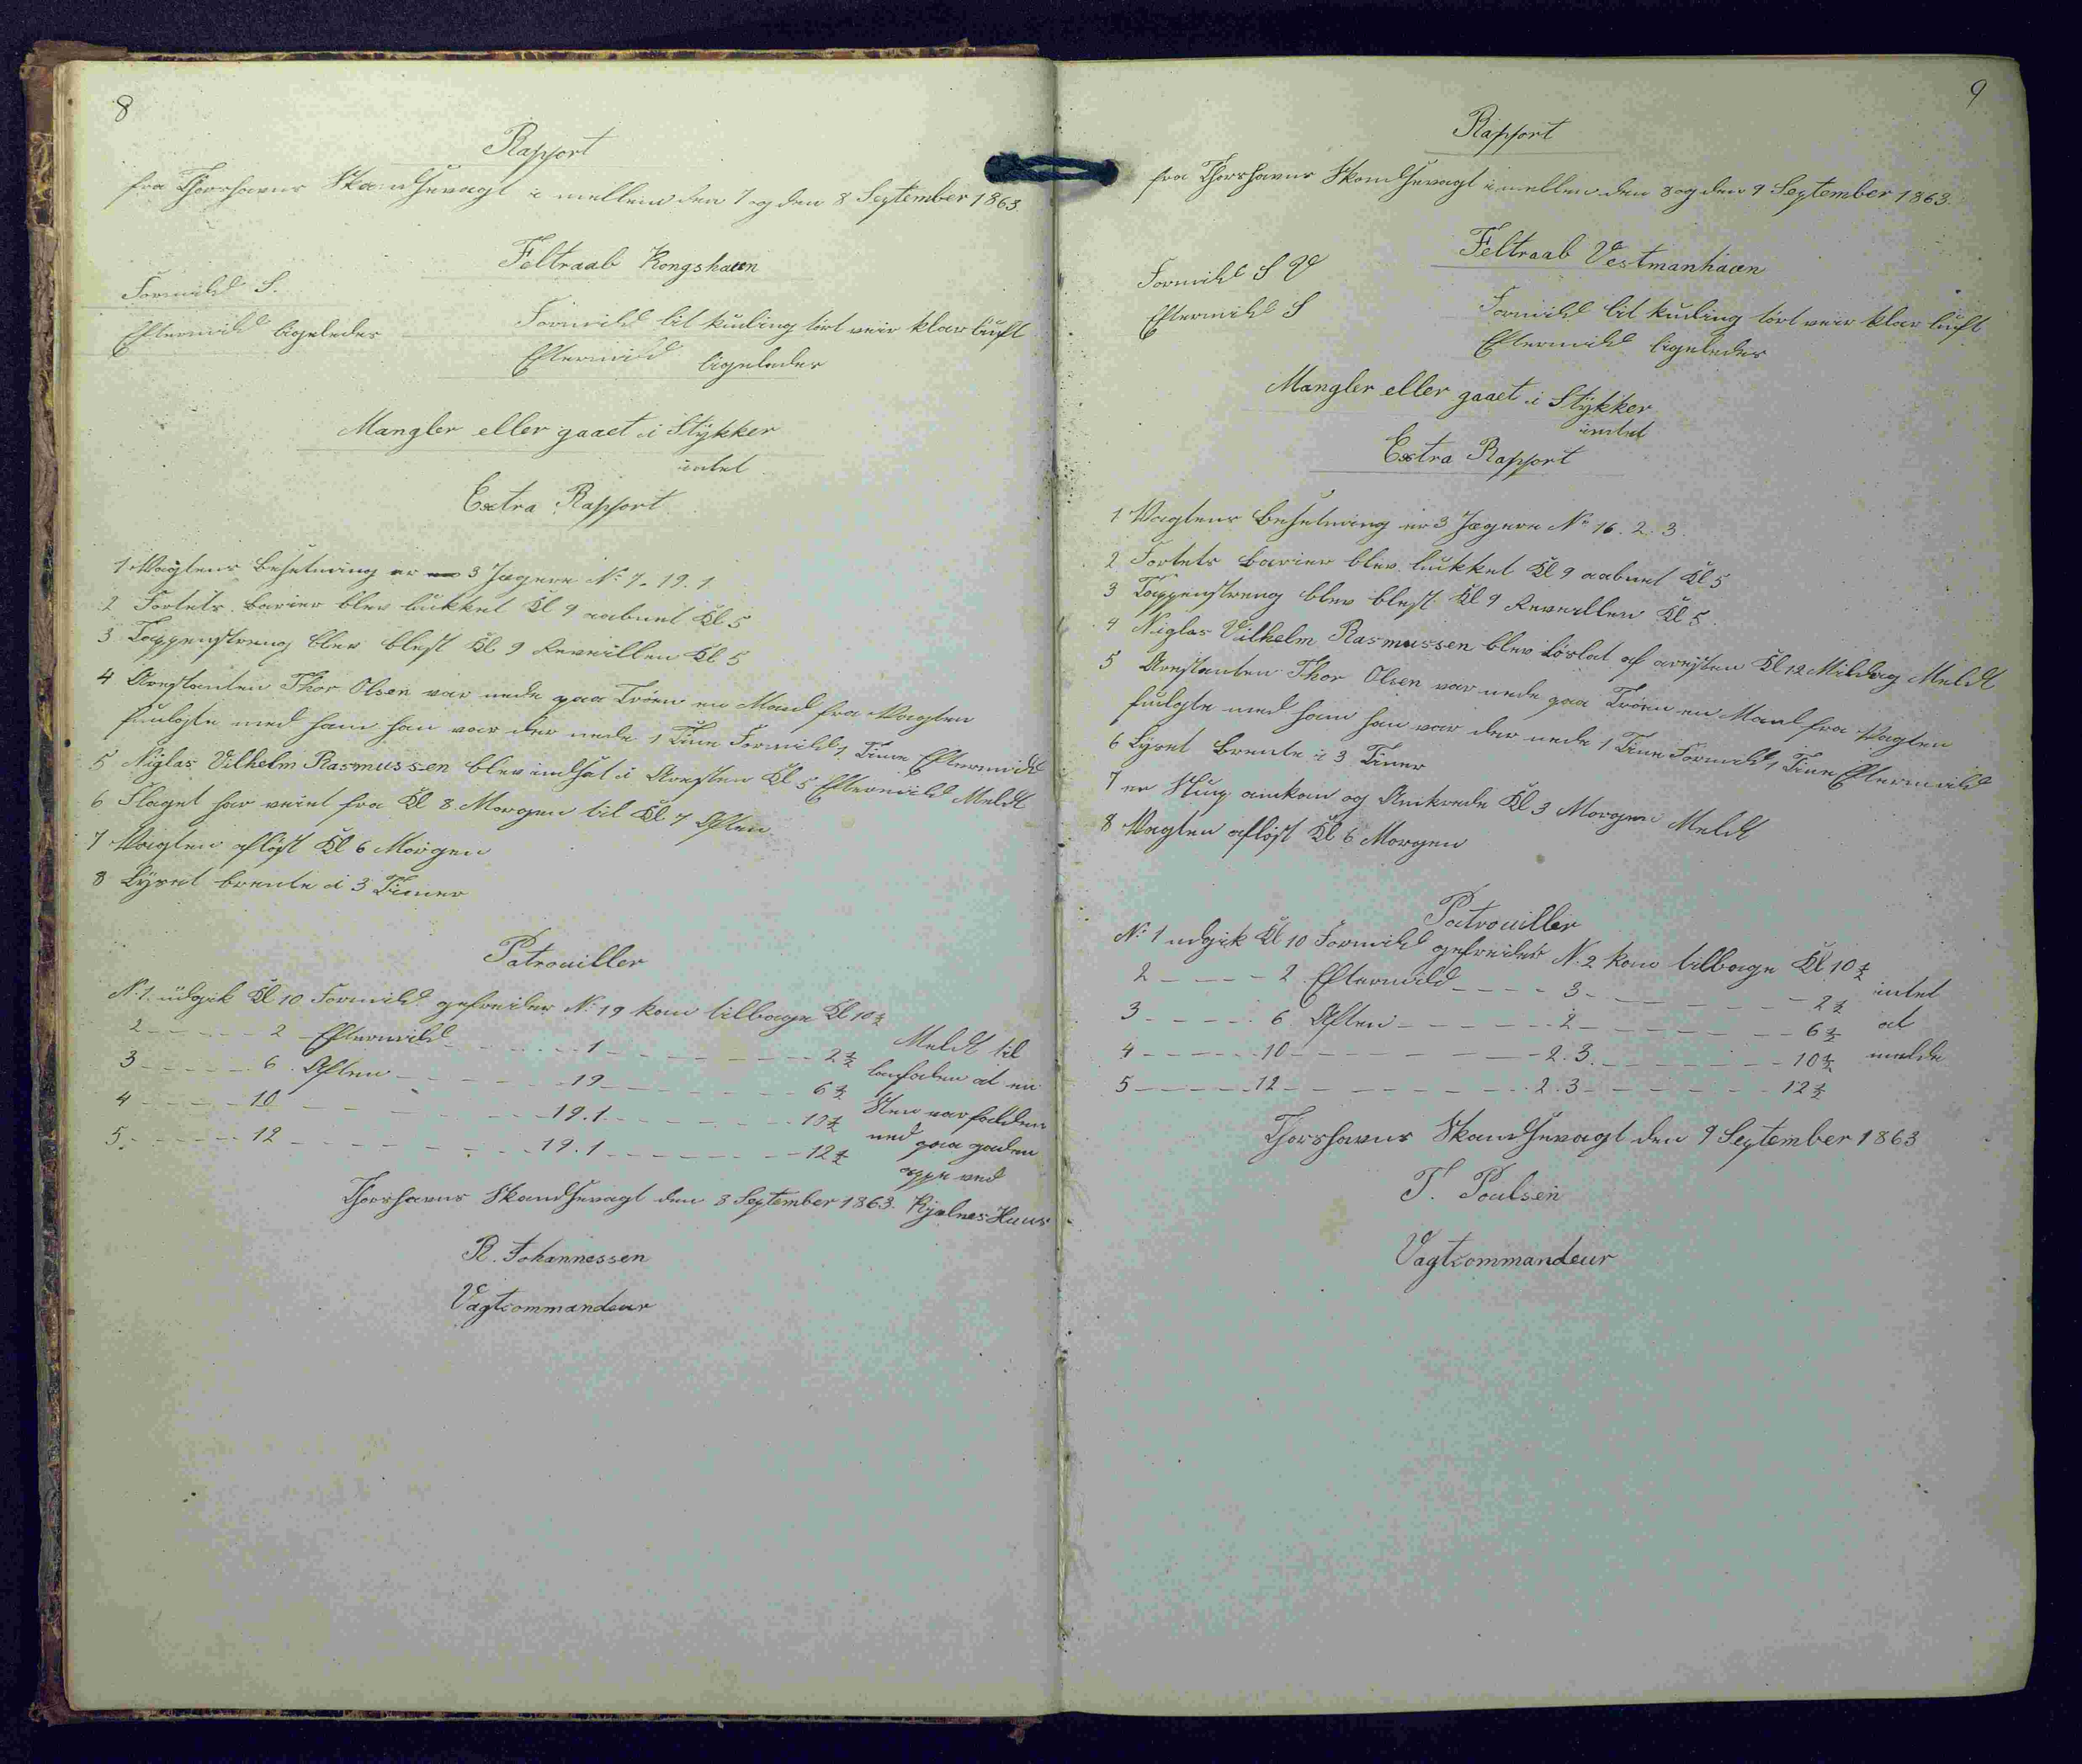 8
Rapport
fra Thorshavns Skandsevagt i mellem den 7 og den 8 September 1863.
Feltraab Kongshavn
Formidd S.
Eftermidd ligeledes
Formidd lit kuling tört veir klar lüft
Eftermidd ligeledes
Mangler eller gaaet i Stÿkker
intet
Extra Rapport
1 Vagtens Besetning er 3 Jægere No 7. 19. 1
2 Fortets Barier blev lükket Kl 9 aabnet Kl 5
3 Tappenstreng blev blest Kl 9 Reveillen Kl 5
4 Arestanten Thor Olsen var nede paa Tröen en Mand fra Vagten
fuulgte med ham han var der nede 1 Time Formidd 1 Time Eftermidd
5 Niglas Vilhelm Rasmussen blev indsat i Aresten Kl 5 Eftermidd Meldt
6 Flaget har veiet fra Kl 8 Morgen til Kl 7 Aften
7 Vagten aflöst Kl 6 Morgen
8 Lÿset brente i 3 Timer
Patrouiller
No 1 üdgik Kl 10 Formidd gefreider No 19 kom tilbage Kl 10½
2 - - - - - 2 Eftermidd - - - - - 1 - - - - - - - - 2½ Meldt til
3 - - - - - 6 Aften - - - - - 19 - - - - - - - 6½ Lanfoden at en
4 - - - - 10 - - - - - - - 19.1 - - - - - - - 10½ Sten var falden
5 - - - - - 12 - - - - - - - 19.1 - - - - - - - 12½ ned paa gaden
oppe ved
Thorshavns Skandsevagt den 8 September 1863. Kjelnes Huus
R. Johannessen
Vagtcommandeur
9
Rapport
fra Thorshavns Skandsevagt imellem den 8 og den 9 September 1863.
Feltraab Vestmanhavn
Formidd S V
Eftermidd S
Formidd lit kuling tört veir klar lüft
Eftermidd ligeledes
Mangler eller gaaet i Stÿkker
intet
Extra Rapport
1 Vagtens Besetning er 3 Jægere No 16. 2. 3.
2 Fortets Barier blev lukket Kl 9 aabnet Kl 5
3 Tappenstreng blev blest Kl 9 Reveillen Kl 5.
4 Niglas Vilhelm Rasmussen blev löslat af aresten Kl 12 Middag Meldt
5 Arestanten Thor Olsen var nede paa Tröen en Mand fra Vagten
fuulgte med ham han var der nede 1 Time Formidd 1 Time Eftermidd
6 Lÿset Brente i 3 Timer
7 en Slup ankom og Ankrede Kl 3 Morgen Meldt
8 Vagten aflöst Kl 6 Morgen
Patrouiller
No 1 udgik Kl 10 Formidd gefreider No 2 kom tilbage Kl 10½
2 - - - - - 2 Eftermidd - - - - 3 - - - - - - - - 2½ intet
3 - - - - - 6 Aften - - - - - 2 - - - - - - - 6½ at
4 - - - - - 10 - - - - - - - 2.3. - - - - - - - 10½ melde
5 - - - - - 12 - - - - - - - 2.3 - - - - - - - 12½
Thorshavns Skandsevagt den 9 September 1863
T. Poulsen
Vagtcommandeur